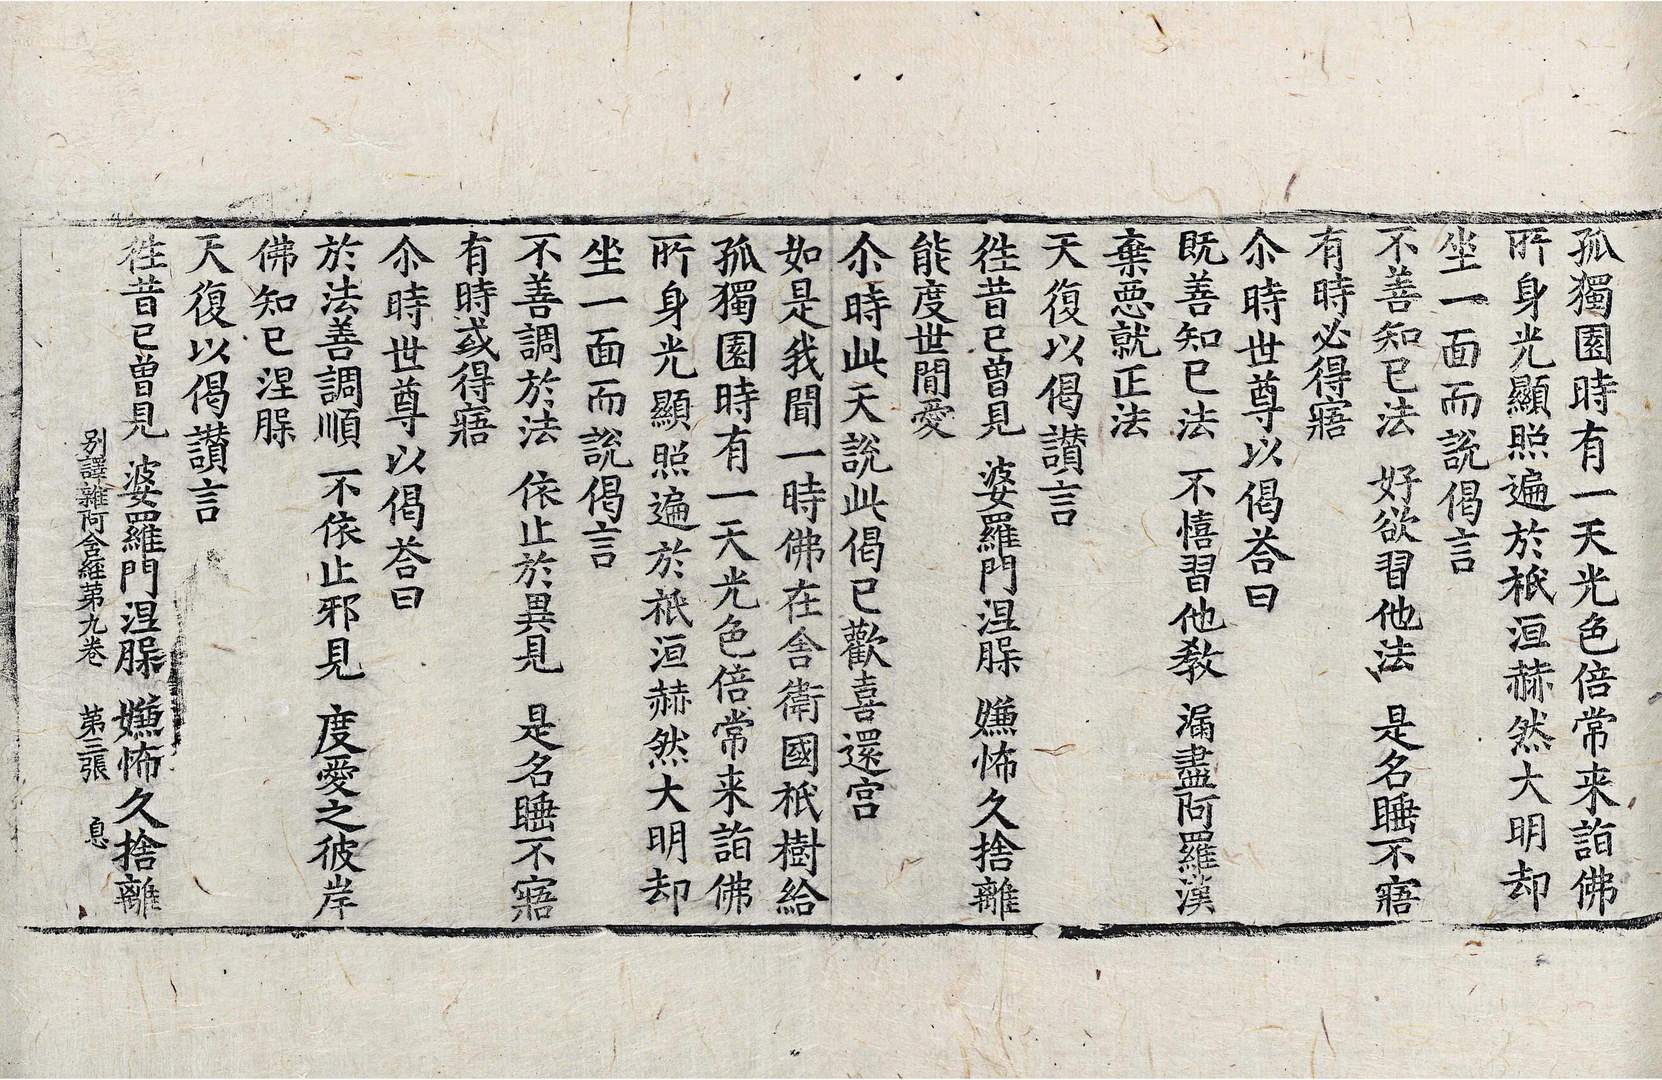 孤獨園時有一天光色倍常来詣佛
所身光顯照遍於祇洹赫然大明却
坐一面而說偈言
不善知已法　好欲習他法　是名睡不寤
有時必得寤
尒時世尊以偈荅曰
既善知已法　不憙習他教　漏盡阿羅漢
棄惡就正法
天復以偈讃言
徃昔已曾見　婆羅門涅槃　嫌怖久捨離
能度世間愛
尒時此天說此偈已歡喜還宮
如是我聞一時佛在舎衛國祇樹給
孤獨園時有一天光色倍常来詣佛
所身光顯照遍於祇洹赫然大明却
坐一面而說偈言
不善調於法　依止於異見　是名睡不寤
有時或得寤
尒時世尊以偈荅曰
於法善調順　不依止邪見　度愛之彼岸
佛知已涅槃
天復以偈讃言
徃昔已曾見　婆羅門涅槃　嫌怖久捨離
別譯雜阿含経苐九卷　第三張　息